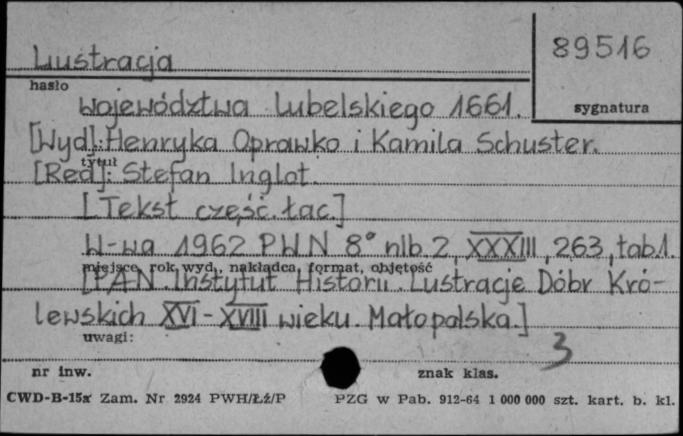 89516
Lustracja
hasło
sygnatura
województwa Lubelskiego 1661.
[Wyd]: Henryka Oprawko i Kamila Schuster.
tytuł
[Red]: Stefan Inglot.
[Tekst część. łac.]
W-wa 1962 PWN 8° nlb. 2, XXXIII, 263, tab.1.
miejsce, rok wyd., nakładca, format, objętość
[PAN. Instytut Historii. Lustracje Dóbr Kró-
lewskich XVI-XVIII wieku. Małopolska.]
uwagi:
3
nr inw.
znak klas.
CWD-B-15a Zam. Nr 2924 PWH/Łź/P PZG w Pab. 912-64 1 000 000 szt. kart. b. kl.